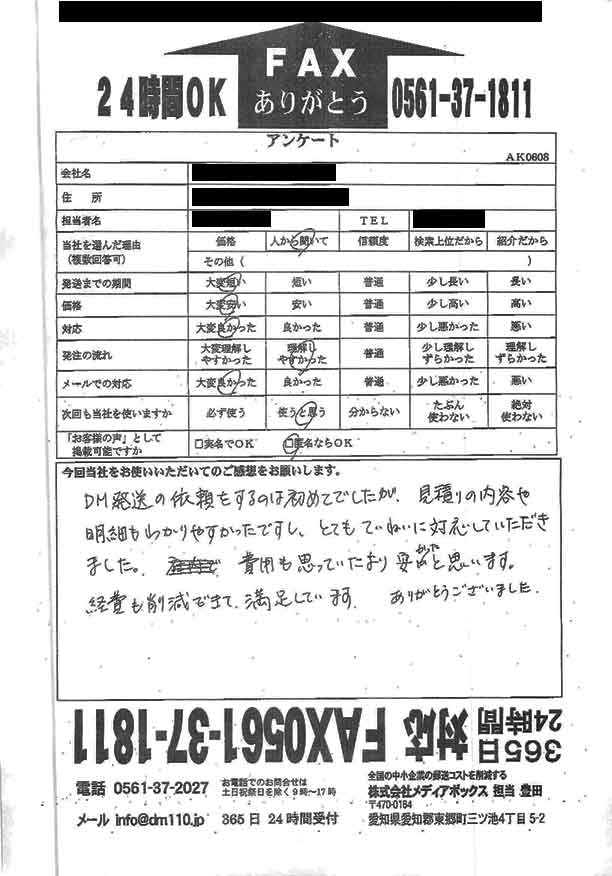 FAX
ありがとう
24時間OK
0561-37-1811
アンケート
AK0608
会社名
住 所
担当者名 TEL
当社を選んだ理由 (複数回答可) 価格 人から聞いて 信頼度 検索上位だから 紹介だから
その他 ( )
発送までの期間 大変短い 短い 普通 少し長い 長い
価格 大変安い 安い 普通 少し高い 高い
対応 大変良かった 良かった 普通 少し悪かった 悪い
発注の流れ 大変理解しやすかった 理解しやすかった 普通 少し理解しずらかった 理解しずらかった
メールでの対応 大変良かった 良かった 普通 少し悪かった 悪い
次回も当社を使いますか 必ず使う 使うと思う 分からない たぶん使わない 絶対使わない
「お客様の声」として掲載可能ですか □実名でOK □匿名ならOK
今回当社をお使いいただいてのご感想をお願いします。
DM発送の依頼をするのは初めてでしたが、見積りの内容や
明細もわかりやすかったですし、とてもていねいに対応していただき
ました。 費用も思っていたより安かったと思います。
経費も削減できて、満足しています。 ありがとうございました。
365日 24時間 対応 FAX0561-37-1811
電話 0561-37-2027 お電話でのお問合せは 土日祝祭日を除く9時~17時
メール info@dm110.jp 365日 24時間受付
全国の中小企業の郵送コストを削減する
株式会社メディアボックス 担当 豊田
〒470-0164
愛知県愛知郡東郷町三ツ池4丁目5-2